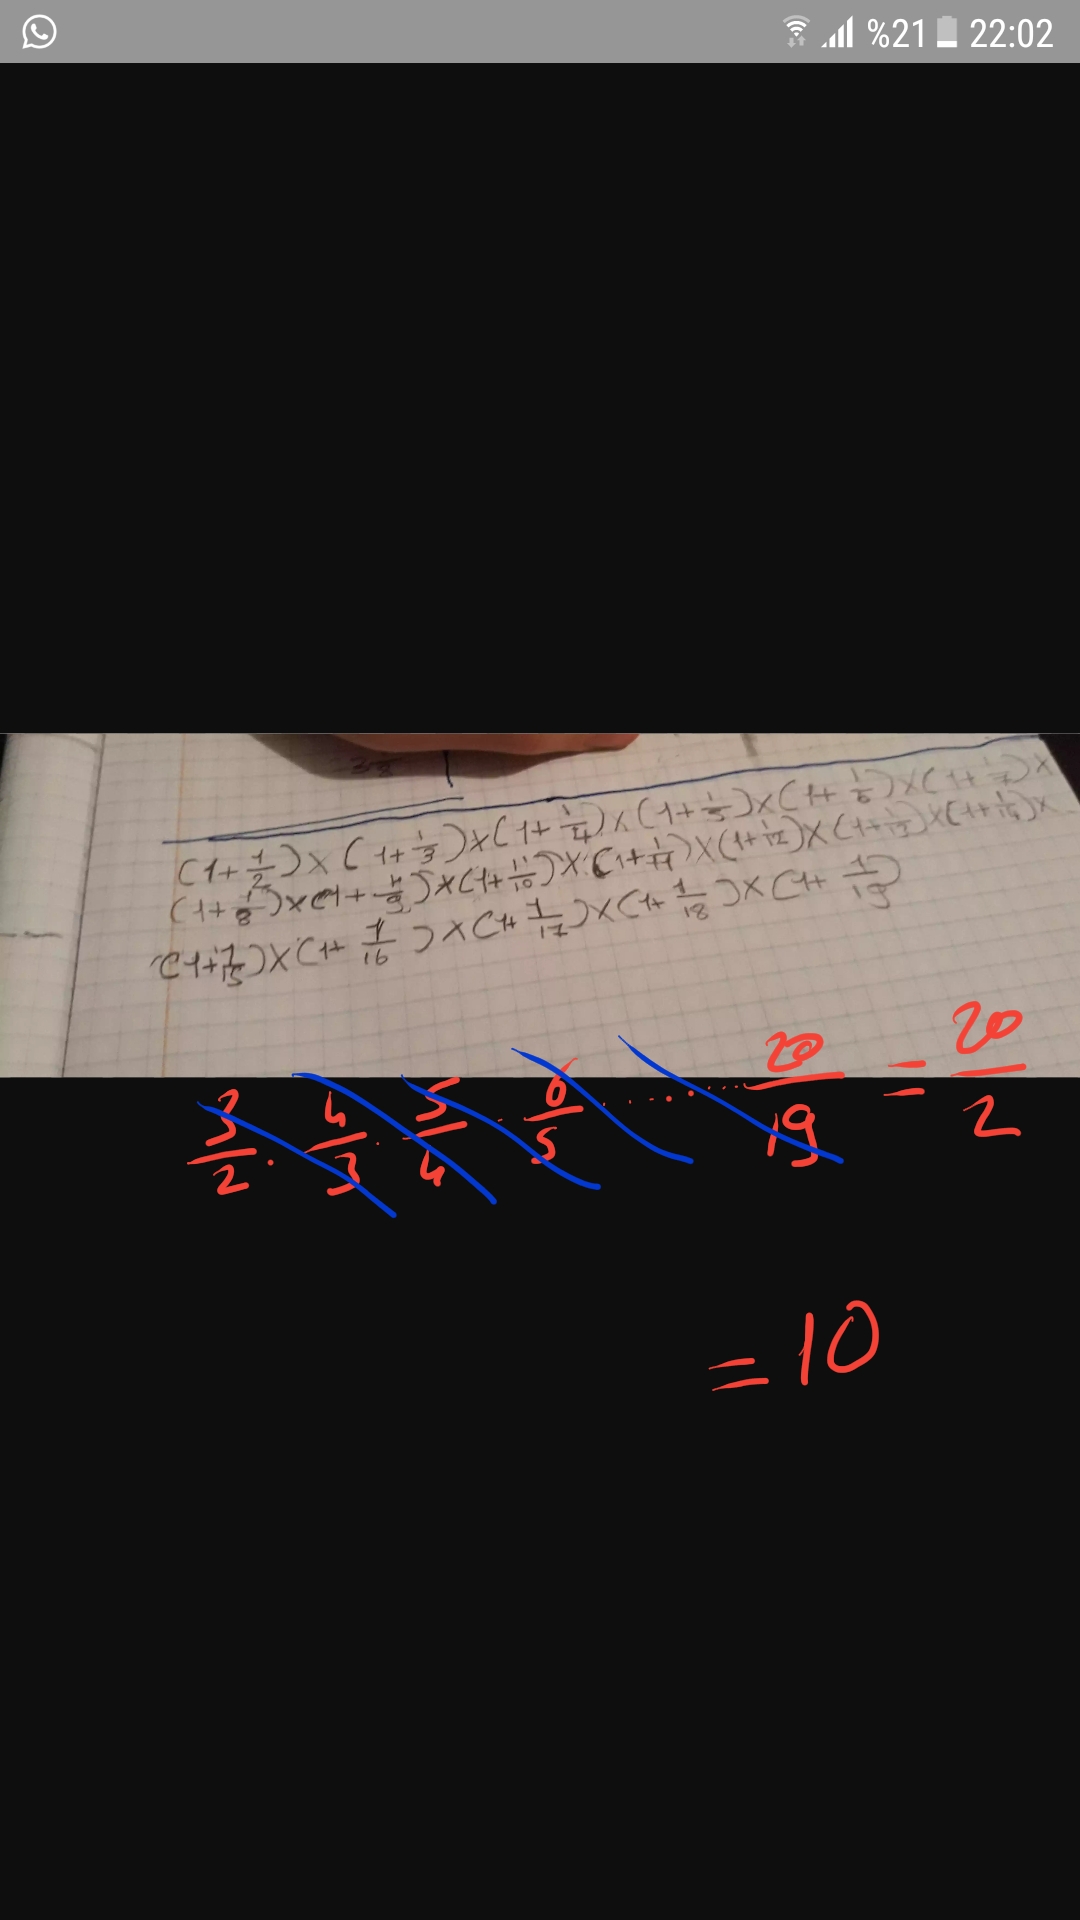 %21 22:02
(1+1/2)×(1+1/3)×(1+1/4)×(1+1/5)×(1+1/6)×(1+1/7)×
(1+1/8)×(1+1/9)×(1+1/10)×(1+1/11)×(1+1/12)×(1+1/13)×(1+1/14)×
(1+1/15)×(1+1/16)×(1+1/17)×(1+1/18)×(1+1/19)
3/2 . 4/3 . 5/4 . 6/5 ........ 20/19 = 20/2
= 10